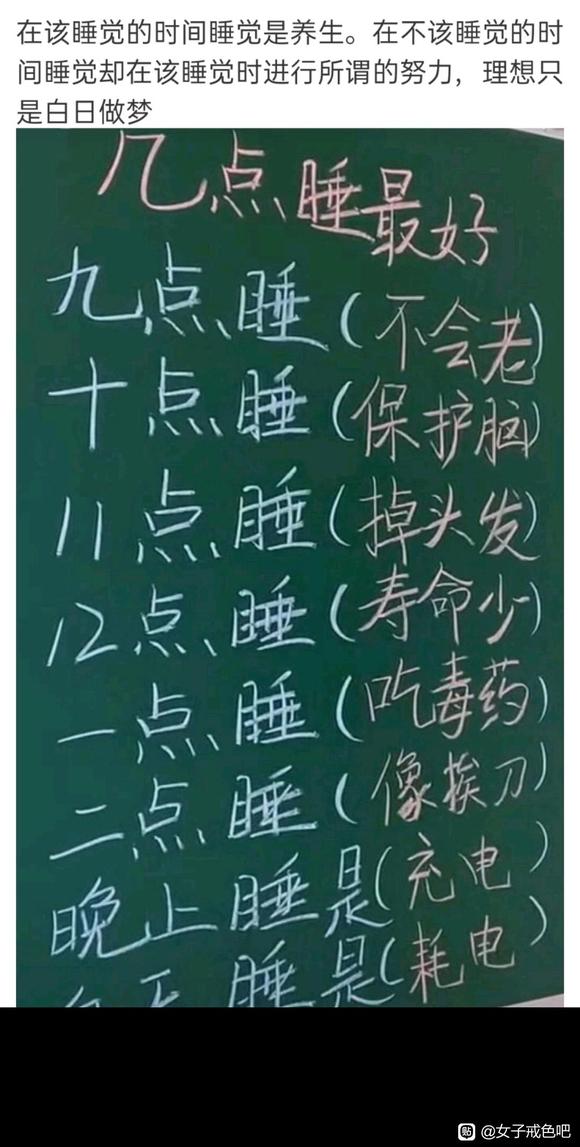 在该睡觉的时间睡觉是养生。在不该睡觉的时
间睡觉却在该睡觉时进行所谓的努力，理想只
是白日做梦
几点睡最好
九点睡(不会老)
十点睡(保护脑)
11点睡(掉头发)
12点睡(寿命少)
一点睡(吃毒药)
二点睡(像挨刀)
晚上睡是(充电)
睡是(耗电)
贴 @女子戒色吧